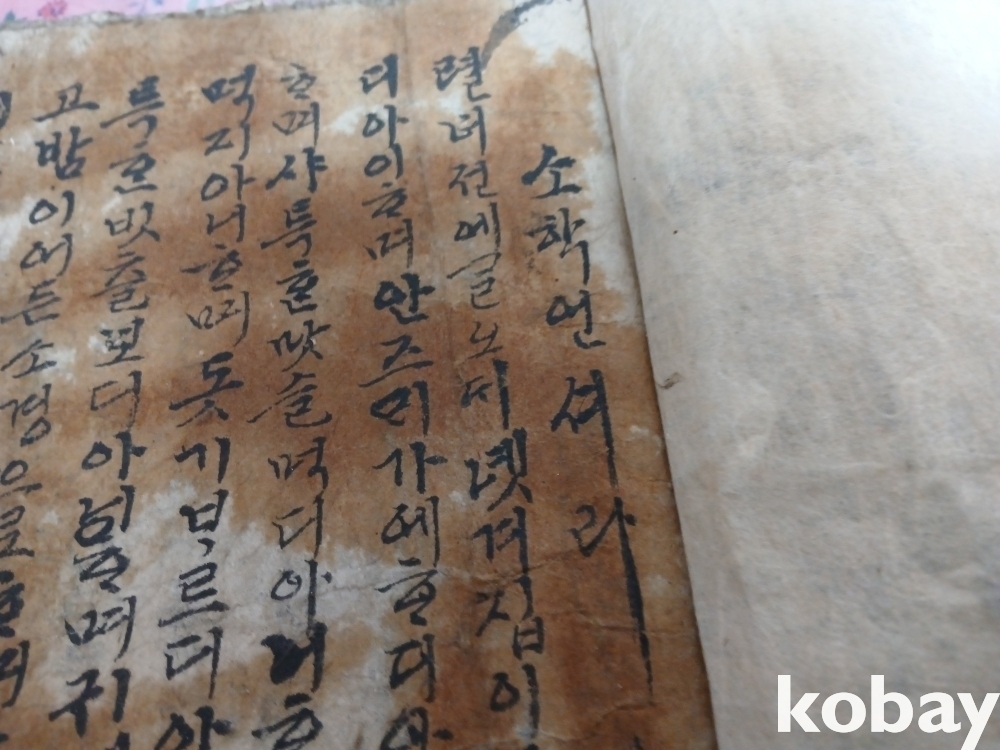 소학언셔라
렬녀젼에글노디녯겨집이
디아이ᄒᆞ며안즈미가에ᄒᆞ디아
ᄒᆞ며샤특ᄒᆞᆫ맛슬먹디아니ᄒᆞ
먹지아니ᄒᆞ며돗기ᄇᆞ르디아
특ᄒᆞᆫ빗츨보디아 ᄒᆞ며귀
고밤이어든소경으로ᄒᆞ
kobay